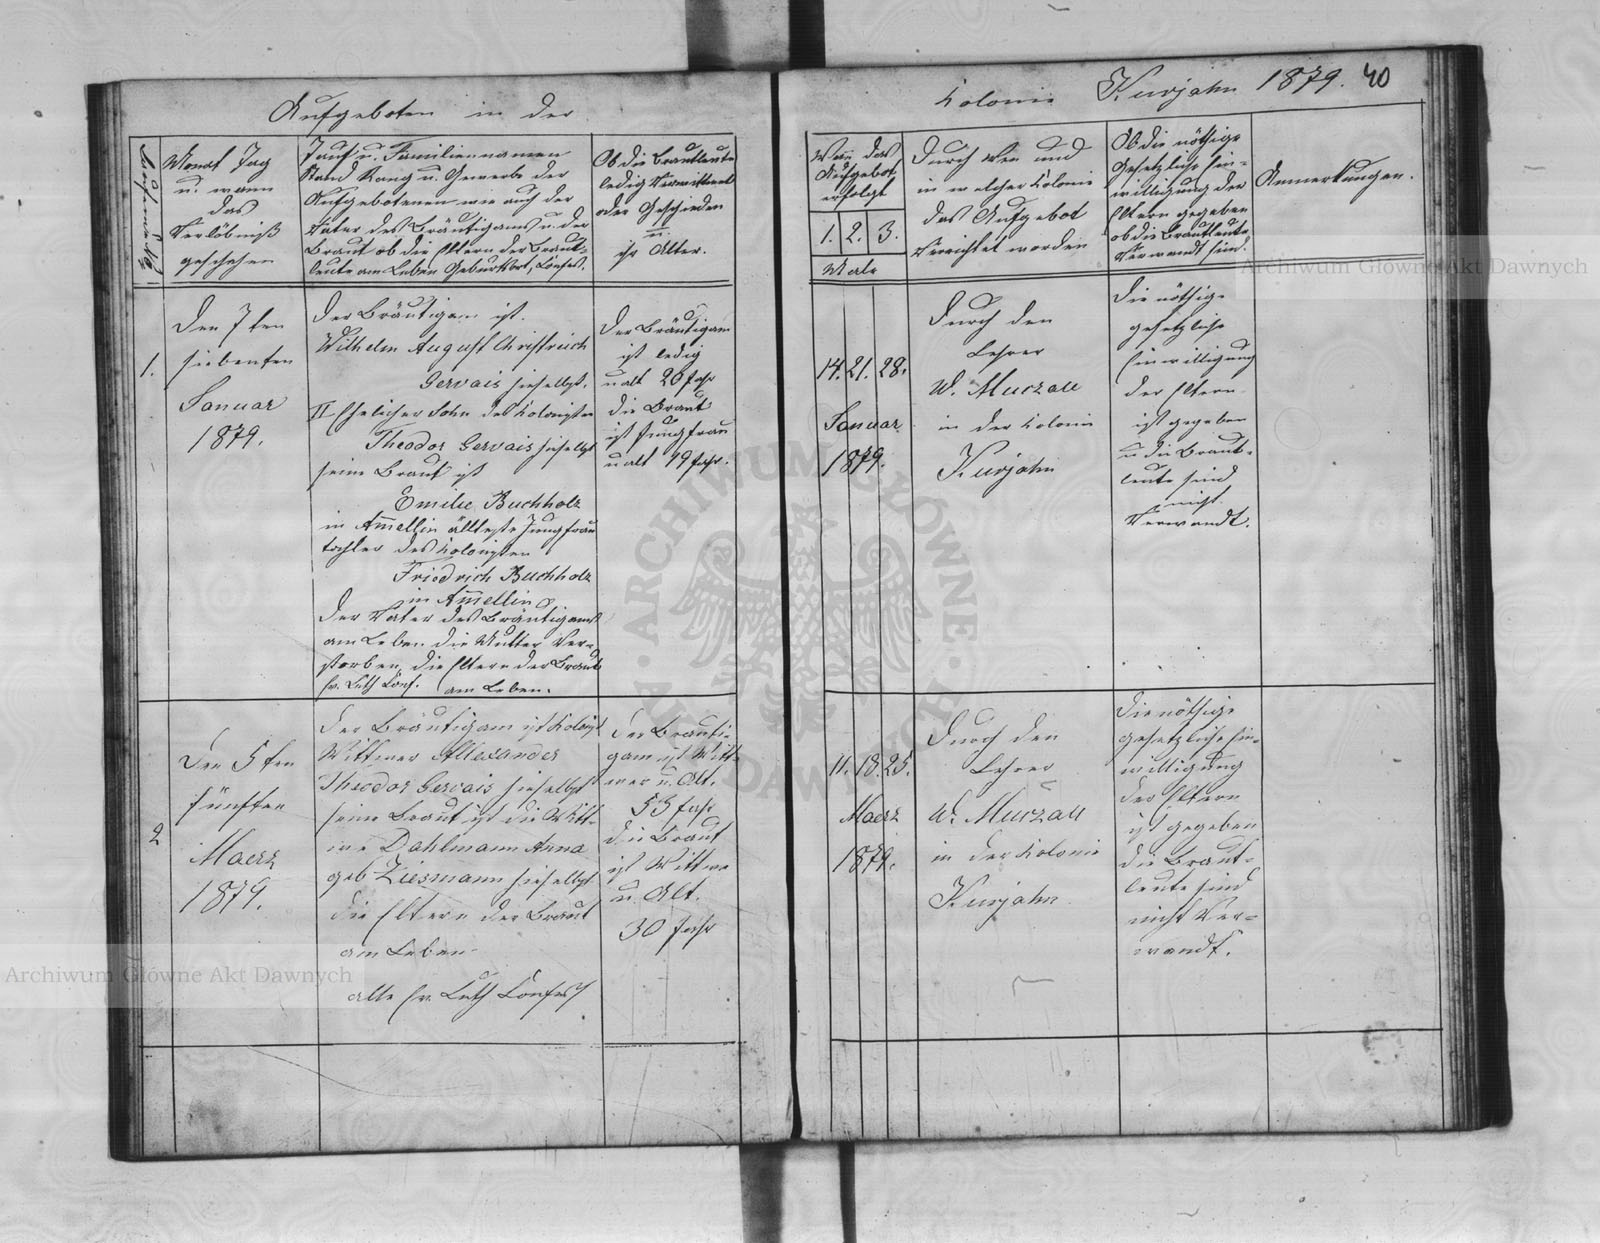 Aufgeboten in der
Kolonie Kurjahn 1879. 40
Monat Tag
u. wann
das
Verlöbniß
geschehen
Tauf u. Familiennamen
Stand Rang u. Gewerbe der
Aufgebotenen wie auch der
Väter des Bräutigams u. der
Braut ob die Eltern der Braut-
leute am Leben Geburtsort, Confes.
Ob die Brautleute
ledig Verwittwet
oder Geschieden
u.
ihr Alter.
Wann das
Aufgebot
erfolgt
1. 2. 3.
Male
Durch Wen und
in welcher Kolonie
das Aufgebot
Verrichtet worden
Ob die nöthige
Gesetzliche Ein-
willigung der
Eltern gegeben
ob die Brautleute
Verwandt sind.
Anmerkungen.
1.
Den 7ten
siebenten
Januar
1879.
Der Bräutigam ist.
Wilhelm August Christreich
Gervais hieselbst.
II Ehelicher Sohn des Kolonisten
Theodor Gervais hieselbst
seine Braut ist
Emilie Buchholz
in Amellin älteste Jungfrau
tochter des Kolonisten
Friedrich Buchholz
in Amellin
Der Vater des Bräutigams
am Leben die Mutter Ver-
storben, die Eltern der Braut
Ev. Luth Conf. am Leben.
Der Bräutigam
ist ledig
u alt 20 Jahr
die Braut
ist Jungfrau
u alt 19 Jahr.
14. 21. 28.
Januar.
1879.
Durch den
Lehrer
W. Murzau
in der Kolonie
Kurjahn
Die nöthige
gesetzliche
Einwilligung
der Eltern
ist gegeben
u die Braut-
leute sind
nicht
Verwandt.
2
Den 5ten
fünften
Maerz
1879.
Der Bräutigam ist Kolonist
Wittwer Allexander
Theodor Gervais hieselbst
seine Braut ist die Witt-
we Dahlmann Anna
geb Ziesmann hieselbst
die Eltern der Braut
am Leben
alle Ev. Luth Confess
Der Bräuti-
gam ist Witt-
wer u. Alt.
53 Jahr
die Braut
ist Wittwe
u. Alt.
30 Jahr
11. 18. 25.
Maerz
1879.
Durch den
Lehrer
W. Murzau
in der Kolonie
Kurjahn
Die nöthige
gesetzliche Ein-
willigung
der Eltern
ist gegeben
die Braut-
leute sind
nicht Ver-
wandt.
Archiwum Główne Akt Dawnych
Archiwum Główne Akt Dawnych
ARCHIWUM GŁÓWNE AKT DAWNYCH